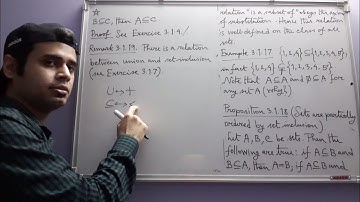 B⊆C, then A⊆C
Proof. See Exercise 3.1.4./
Remark 3.1.19. There is a relation
between union and set-inclusion
(see Exercise 3.1.7)
∪ ↔ +
⊆ ↔ ≤
relation "is a subset of" obeys the axiom
of substitution. Hence this relation
is well-defined on the class of all
sets.
Example 3.1.17 {1,2,4} ⊆ {1,2,3,4,5},
in fact, {1,2,4} ⊊ {1,2,3,4,5}.
Note that A⊆A and ∅⊆A for
any set A (why?)
Proposition 3.1.18 (Sets are partially
ordered by set inclusion)
Let A, B, C be sets. Then the
following are true: if A⊆B and
B⊆A, then A=B; if A⊆B and